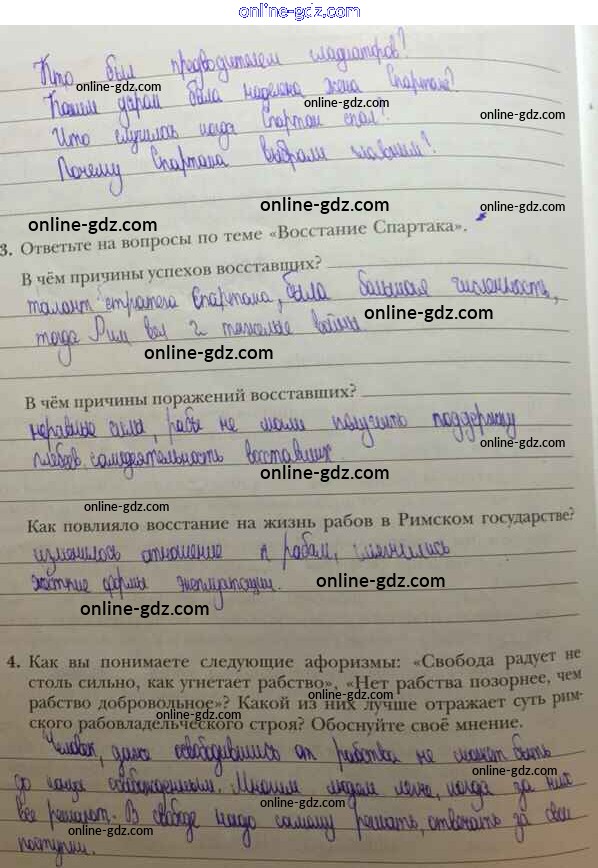 online-gdz.com
Кто был предводителем гладиаторов?
online-gdz.com
Каким даром была наделена жена Спартака?
online-gdz.com
Что случилось когда Спартак спал?
online-gdz.com
Почему Спартака выбрали главным?
online-gdz.com
online-gdz.com
3. Ответьте на вопросы по теме «Восстание Спартака».
В чём причины успехов восставших?
online-gdz.com
талант стратега Спартака, была большая численность,
online-gdz.com
тогда Рим вел 2 тяжелые войны
online-gdz.com
В чём причины поражений восставших?
online-gdz.com
неравные силы, рабы не могли получить поддержку
online-gdz.com
плебеев, самодеятельность восставших.
online-gdz.com
online-gdz.com
Как повлияло восстание на жизнь рабов в Римском государстве?
изменилось отношение к рабам, смягчились
online-gdz.com
жёсткие формы эксплуатации.
online-gdz.com
online-gdz.com
4. Как вы понимаете следующие афоризмы: «Свобода радует не
столь сильно, как угнетает рабство», «Нет рабства позорнее, чем
рабство добровольное»? Какой из них лучше отражает суть рим-
online-gdz.com
ского рабовладельческого строя? Обоснуйте своё мнение.
Человек, даже освободившись от рабства не может быть
online-gdz.com
до конца освобожденным. Многим людям легче, когда за них
online-gdz.com
все решают. В свободе надо самому решать, отвечать за свои
online-gdz.com
поступки.
online-gdz.com